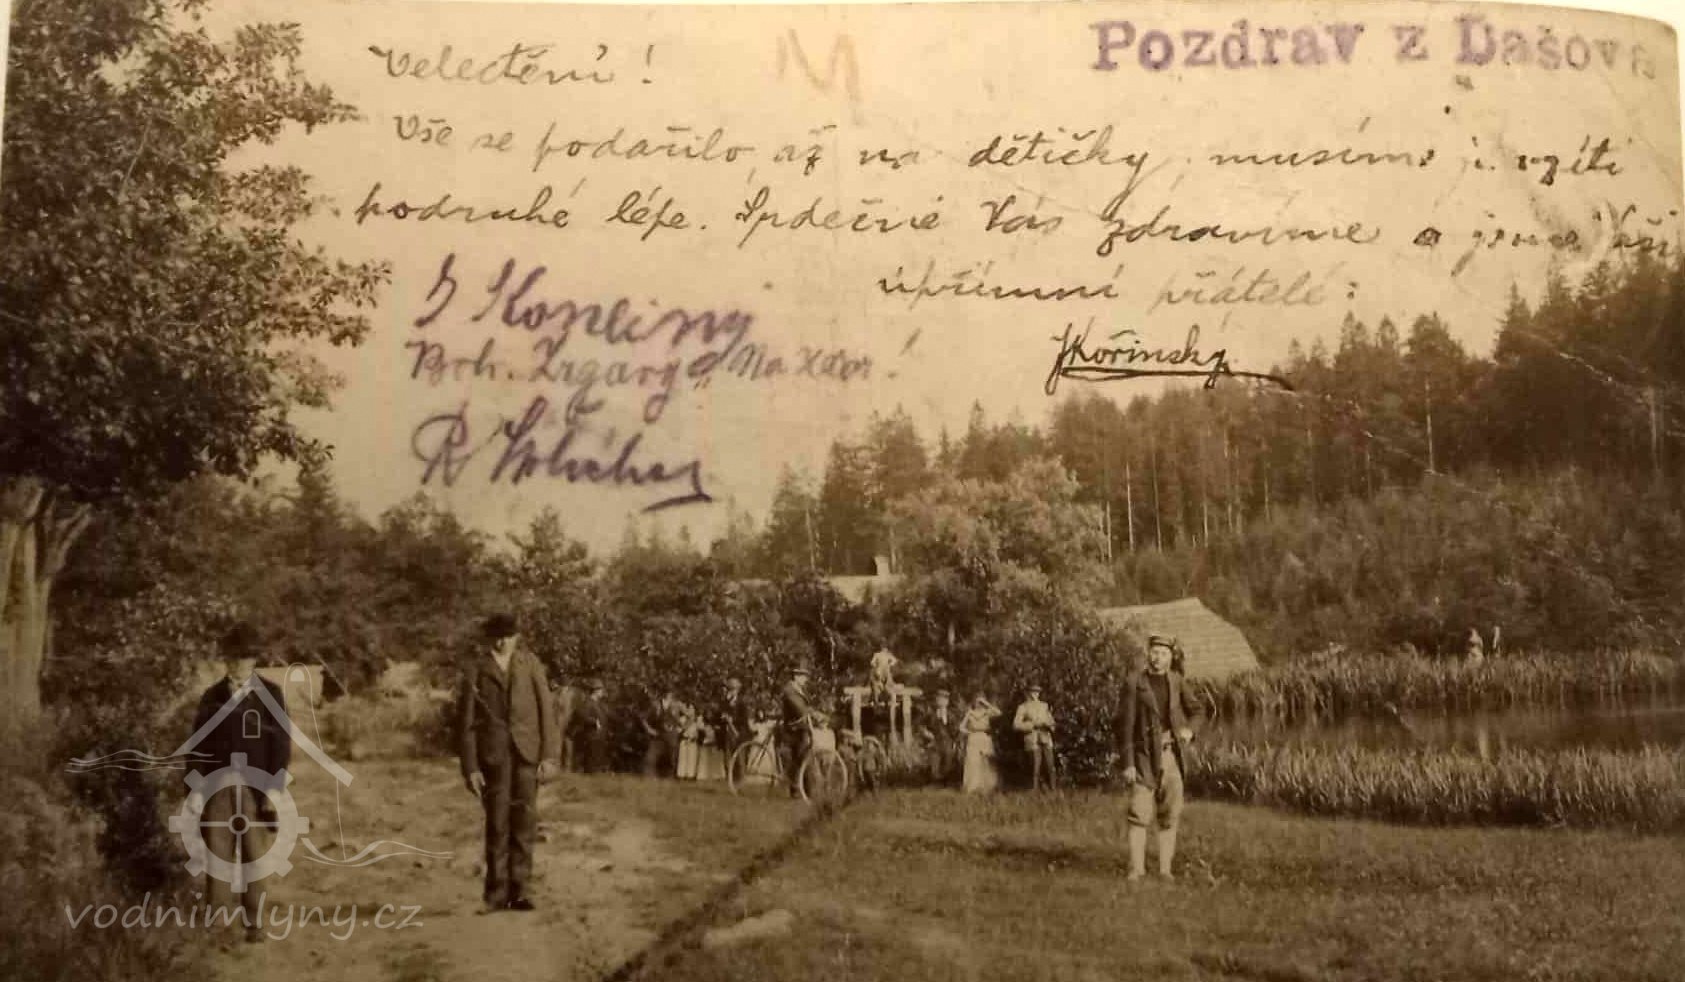 Pozdrav z Dašova
Velectění!
Vše se podařilo, až na dětičky, musíme je vzíti
podruhé lépe. Srdečně Vás zdravíme a jsme Vaši
upřímní přátelé:
JKořínský
Na zdar!
vodnimlyny.cz